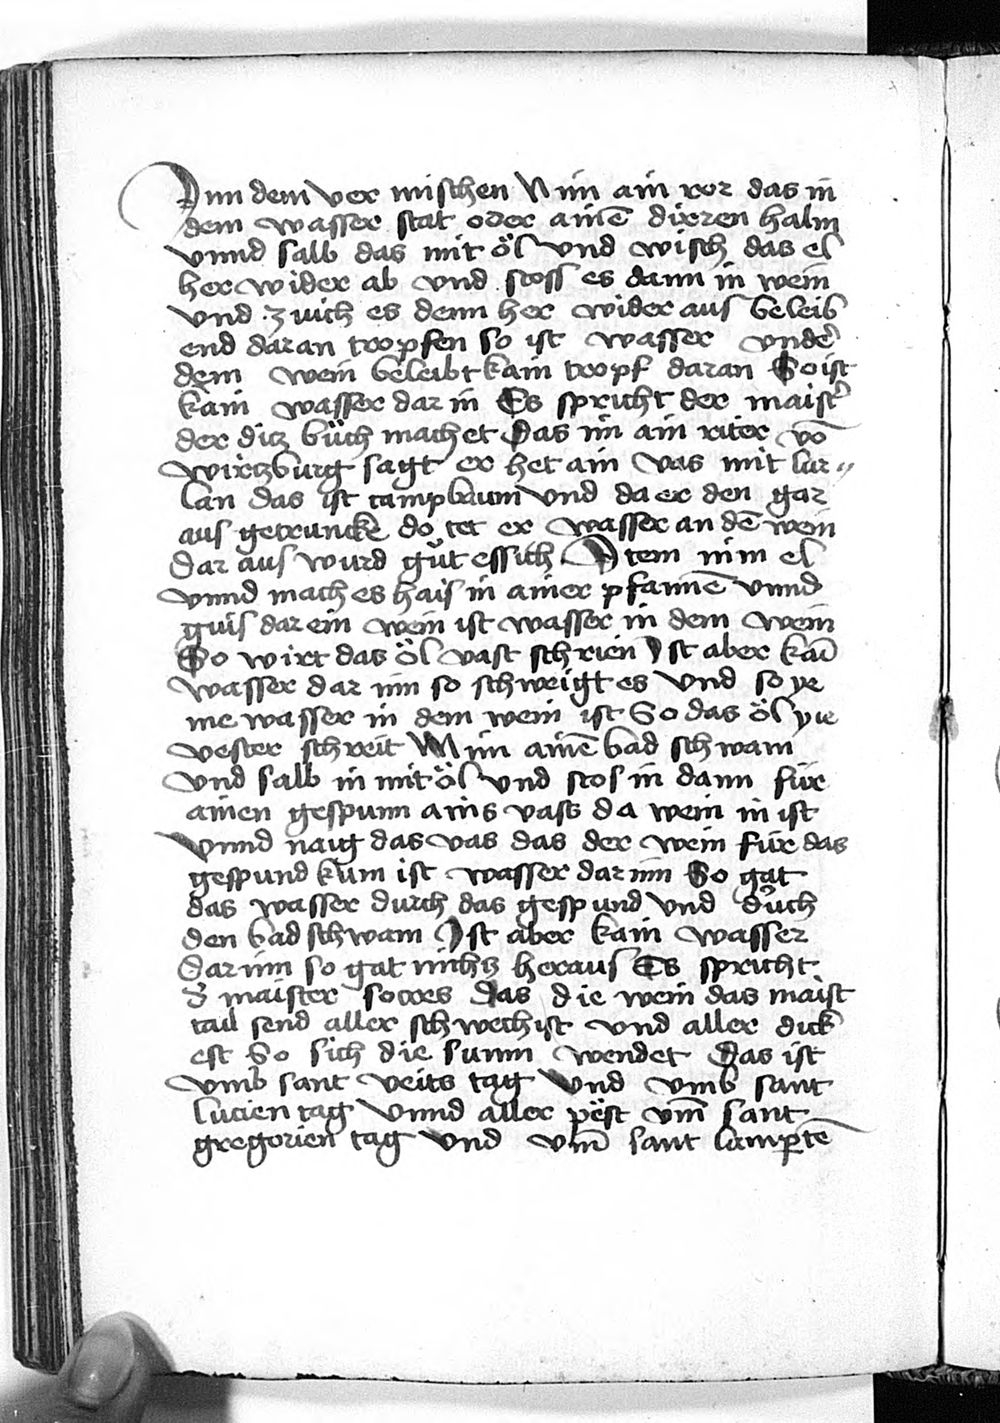 Inn dem ver mischen Nim ain ror das in
dem wasser stat oder ainē dirren halm
vnnd salb das mit öl vnd wisch das el
her wider ab vnd stoss es dann in wein
vnd zuich es denn her wider aus beleib
end daran tropfen so ist wasser vnder
dem wein beleibt kain tropf daran So ist
kain wasser dar in Es spricht der maister
der ditz büch machet Das im ain riter vō
wirtzburg sagt er het ain vas mit lur
lan das ist tampbaum vnd da er den gar
aus getruncke do tet er wasser an dē wein
dar aus wurd gůt essich Item nim el
vnnd mach es hais in ainer pfannē vnnd
guis dar ein wein ist wasser in dem wein
So wirt das öl vast schrien Ist aber kaī
wasser dar inn so schweigt es vnd so ye
me wasser in dem wein ist So das öl yie
vester schreit Nim ainē bad schwam
vnd salb in mit öl vnd stos in dann für
ainen gespunn ains vass da wein in ist
vnnd naig das vas das der wein für das
gespund kum ist wasser dar inn So gat
das wasser durch das gespund vnd důch
den bad schwam Ist aber kain wasser
dar inn so gat nichtz heraus Es spricht
d' maister socres das die wein das maist
tail send aller schwechist vnd aller dick
est So sich die sunn wendet Das ist
vmb sant veits tag vnd vmb sant
lucien tag vnnd aller pëst vm̄ sant
gregorien tag vnd vm̄ sant lampertē